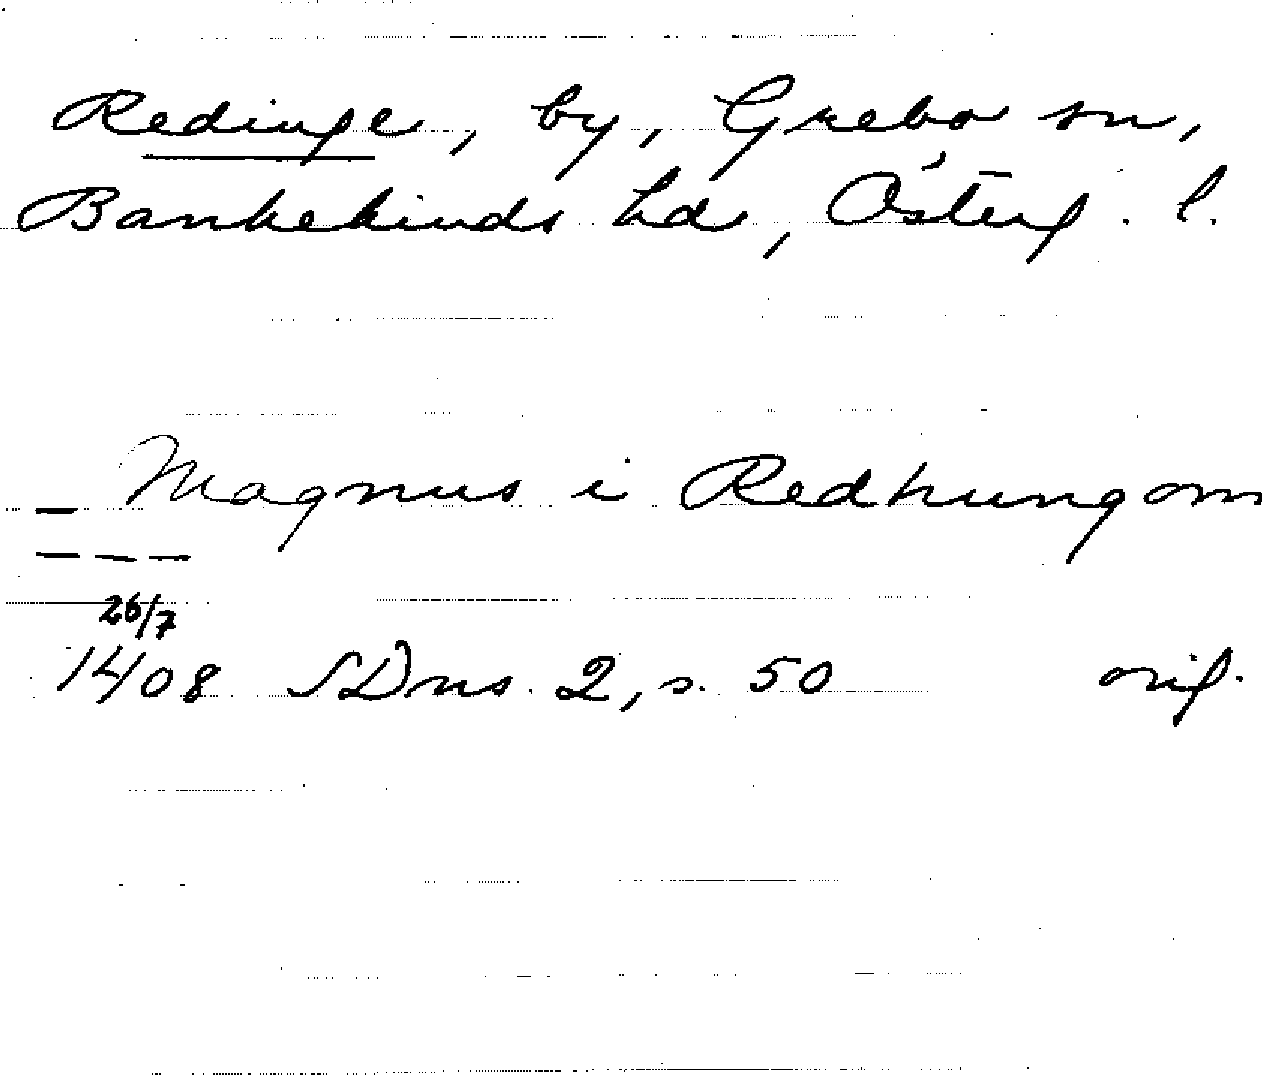 Redinge, by, Grebo sn,
Bankekinds hd, Österg. l.
– Magnus i Redhungom
– – –
26/7
1408 SDns 2, s. 50 orig.